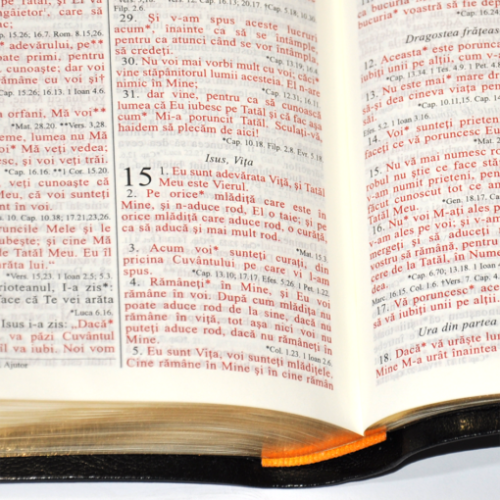 pe Tatăl; El
găietor', care să
Cap. 15.26, 16.7. Rom. 8.15,26.
adevărului, pe**
poate primi, pentru
cunoaşte; dar voi
rămâne cu voi şi†
Cap. 15.26; 16.13. 1 Ioan 4.6.
orfani, Mă voi**
*Mat. 28.20. **Vers. 3,28.
vreme, lumea nu Mă
Mă veţi vedea;
iesc, şi voi veţi trăi.
*Cap. 16.16. **1 Cor. 15.20.
veţi cunoaşte că
Meu, că voi sunteţi
unt în voi.
Cap. 10.38; 17.21,23,26.
runcile Mele şi le
ubeşte; şi cine Mă
e Tatăl Meu. Eu îl
arăta lui."
*Vers. 15,23. 1 Ioan 2.5; 5.3.
rioteanul, I-a zis*:
face că Te vei arăta
*Luca 6.16.
Isus i-a zis: „Dacă*
va păzi Cuvântul
îl va iubi. Noi vom
Ajutor
Filp. 2.8.
29. Şi v-am spus aceste lucruri
acum*, înainte ca să se întâmple,
pentru ca atunci când se vor întâmpla,
să credeţi.
*Cap. 13.19; 16.4.
30. Nu voi mai vorbi mult cu voi; căci*
vine stăpânitorul lumii acesteia. El n-are
nimic în Mine;
*Cap. 12.31, 16.11.
31. dar vine, pentru ca să cunoască
lumea că Eu iubesc pe Tatăl şi că fac aşa
cum* Mi-a poruncit Tatăl. Sculaţi-vă,
haidem să plecăm de aici!
*Cap. 10.18. Filp. 2.8. Evr. 5.18.
Isus, Viţa
15 1. Eu sunt adevărata Viţă, şi Tatăl
Meu este Vierul.
2. Pe orice* mlădiţă care este în
Mine, şi n-aduce rod, El o taie; şi pe
orice mlădiţă care aduce rod, o curăţă,
ca să aducă şi mai mult rod.
*Mat. 15.3.
3. Acum voi* sunteţi curaţi, din
pricina Cuvântului, pe care vi l-am
spus.
*Cap. 13.10; 17.17. Efes. 5.26. 1 Pet. 1.22.
4. Rămâneţi* în Mine, şi Eu voi
rămâne în voi. După cum mlădiţa nu
poate aduce rod de la sine, dacă nu
rămâne în viţă, tot aşa nici voi nu
puteţi aduce rod, dacă nu rămâneţi în
Mine.
*Col. 1.23. 1 Ioan 2.6.
5. Eu sunt Viţa, voi sunteţi mlădiţele.
Cine rămâne în Mine şi în cine rămân
ca bucuria
bucuria* voastră să fie
*Cap. 16.24.
Dragostea frăţeas
12. Aceasta* este porunca
iubiţi unii pe alţii, cum v-
*Cap. 13.34. 1 Tes. 4.9. 1 Pet. 4.8.
13. Nu este mai* mare dr
să-şi dea cineva viaţa pen
*Cap. 10.11,15.
Efes. 5.2. 1 Ioan 3.16.
14. Voi* sunteţi prieten
faceţi ce vă poruncesc Eu
*Mat.
15. Nu vă mai numesc ro
robul nu ştie ce face stă
v-am numit prieteni, pent
făcut cunoscut tot ce am
Tatăl Meu.
*Gen. 18.17.
16. Nu* voi M-aţi ales pe
v-am ales pe voi; şi v-am
mergeţi şi să aduceţi r
vostru să rămână, pentru ca
cere de la Tatăl, în Numele
*Cap. 6.70; 13.18. 1 Ioan
Marc. 16.15. Col. 1.6.
17. Vă poruncesc* aceste
să vă iubiţi unii pe alţii.
Ura din partea
18. Dacă* vă urăşte lum
Mine M-a urât înaintea